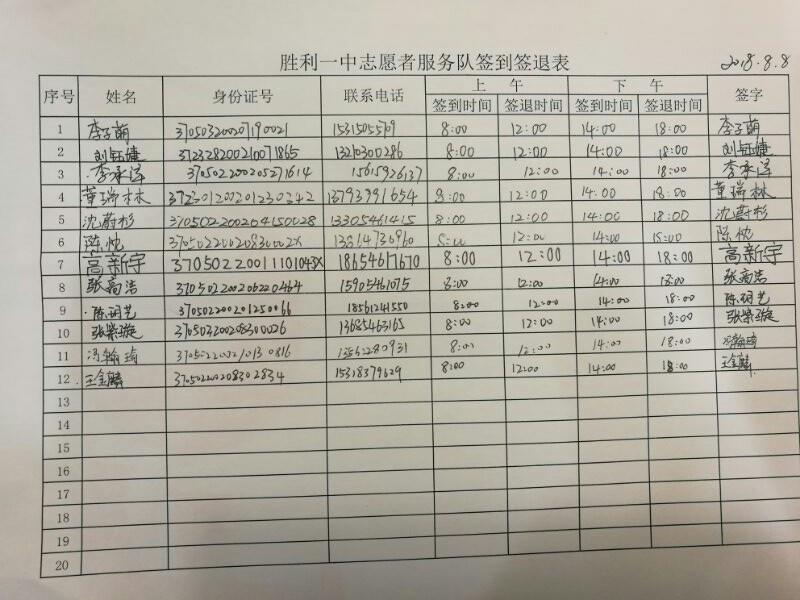 胜利一中志愿者服务队签到签退表 2018.8.8
序号 姓名 身份证号 联系电话 上 午 下 午 签字
签到时间 签退时间 签到时间 签退时间
1 李子萌 370503200207190021 8:00 12:00 14:00 18:00 李子萌
2 刘钰婕 372328200210071865 13210300286 8:00 12:00 14:00 18:00 刘钰婕
3 李承泽 370502200205271614 15615926137 8:00 12:00 14:00 18:00 李承泽
4 董瑞林 13793991654 8:00 12:00 14:00 18:00 董瑞林
5 沈蔚杉 370502200204150028 13305461415 8:00 12:00 14:00 18:00 沈蔚杉
6 陈忱 37050220020830002X 8:00 12:00 14:00 陈忱
7 高新宇 37050220011101043X 18654617670 8:00 12:00 14:00 18:00 高新宇
8 张高洁 370502200206220464 15905461075 8:00 12:00 14:00 18:00 张高洁
9 陈玥艺 370502200201250066 18561241550 8:00 12:00 14:00 18:00 陈玥艺
10 张紫璇 370503200208300026 13685463165 8:00 12:00 14:00 18:00 张紫璇
11 冯翰琦 370502200210130816 8:00 12:00 14:00 18:00 冯翰琦
12 王金麟 370502200208302834 15318379629 8:00 12:00 14:00 18:00 王金麟
13
14
15
16
17
18
19
20